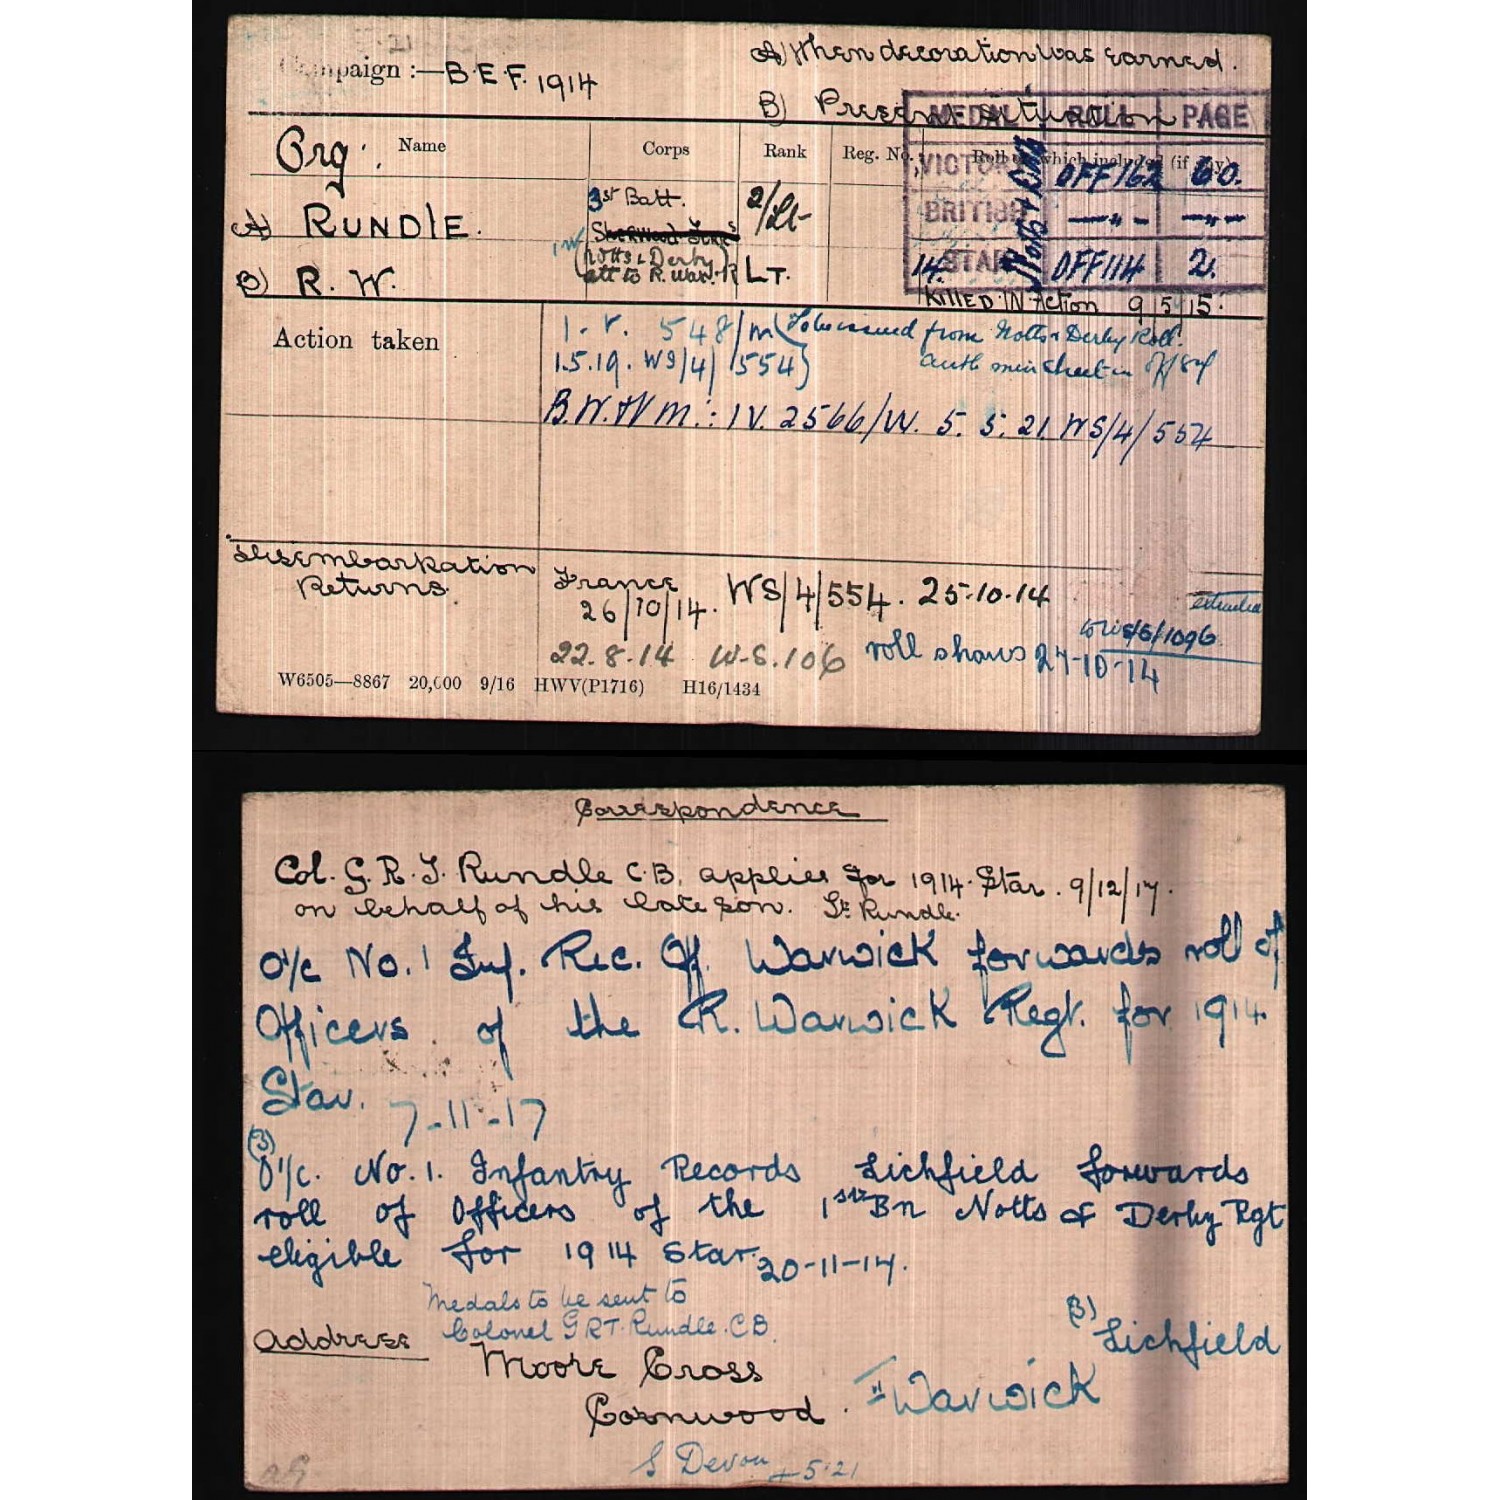 Campaign :— B.E.F. 1914
A) When decoration was earned.
B) Present situation
MEDAL ROLL PAGE
Name Corps Rank Reg. No. Roll on which included (if any)
VICTORY OFF/162 60.
BRITISH —„— —„—
14. STAR OFF114 2.
A) RUNDLE. 3st Batt. 2/Lt
Sherwood Fors
(Notts & Derby)
B) R. W. att to R. War. R LT.
KILLED IN Action 9/5/15.
Action taken
I.V. 548/M (To be issued from Notts & Derby Roll.
1.5.19. WS/4/554)
B.W. & V M. : IV. 2566/W. 5. 5. 21 WS/4/554
Disembarkation
Returns.
France
26/10/14. WS/4/554. 25.10.14
22.8.14 W.S.106 roll shows 27-10-14
W6505—8867 20,000 9/16 HWV(P1716) H16/1434
Correspondence
Col. G. R. T. Rundle C.B. applies for 1914 Star. 9/12/17.
on behalf of his late son. Lt Rundle.
O i/c No. 1 Inf. Rec. Off. Warwick forwards roll of
Officers of the R. Warwick Regt. for 1914
Star. 7-11-17
(3)
O i/c. No. 1. Infantry Records Lichfield forwards
roll of Officers of the 1st Bn Notts & Derby Rgt
eligible for 1914 Star. 20-11-17.
Medals to be sent to
Colonel G R T. Rundle. C B.
Address
Moore Cross
Cornwood.
S Devon 4.5.21
(3) Lichfield
Warwick